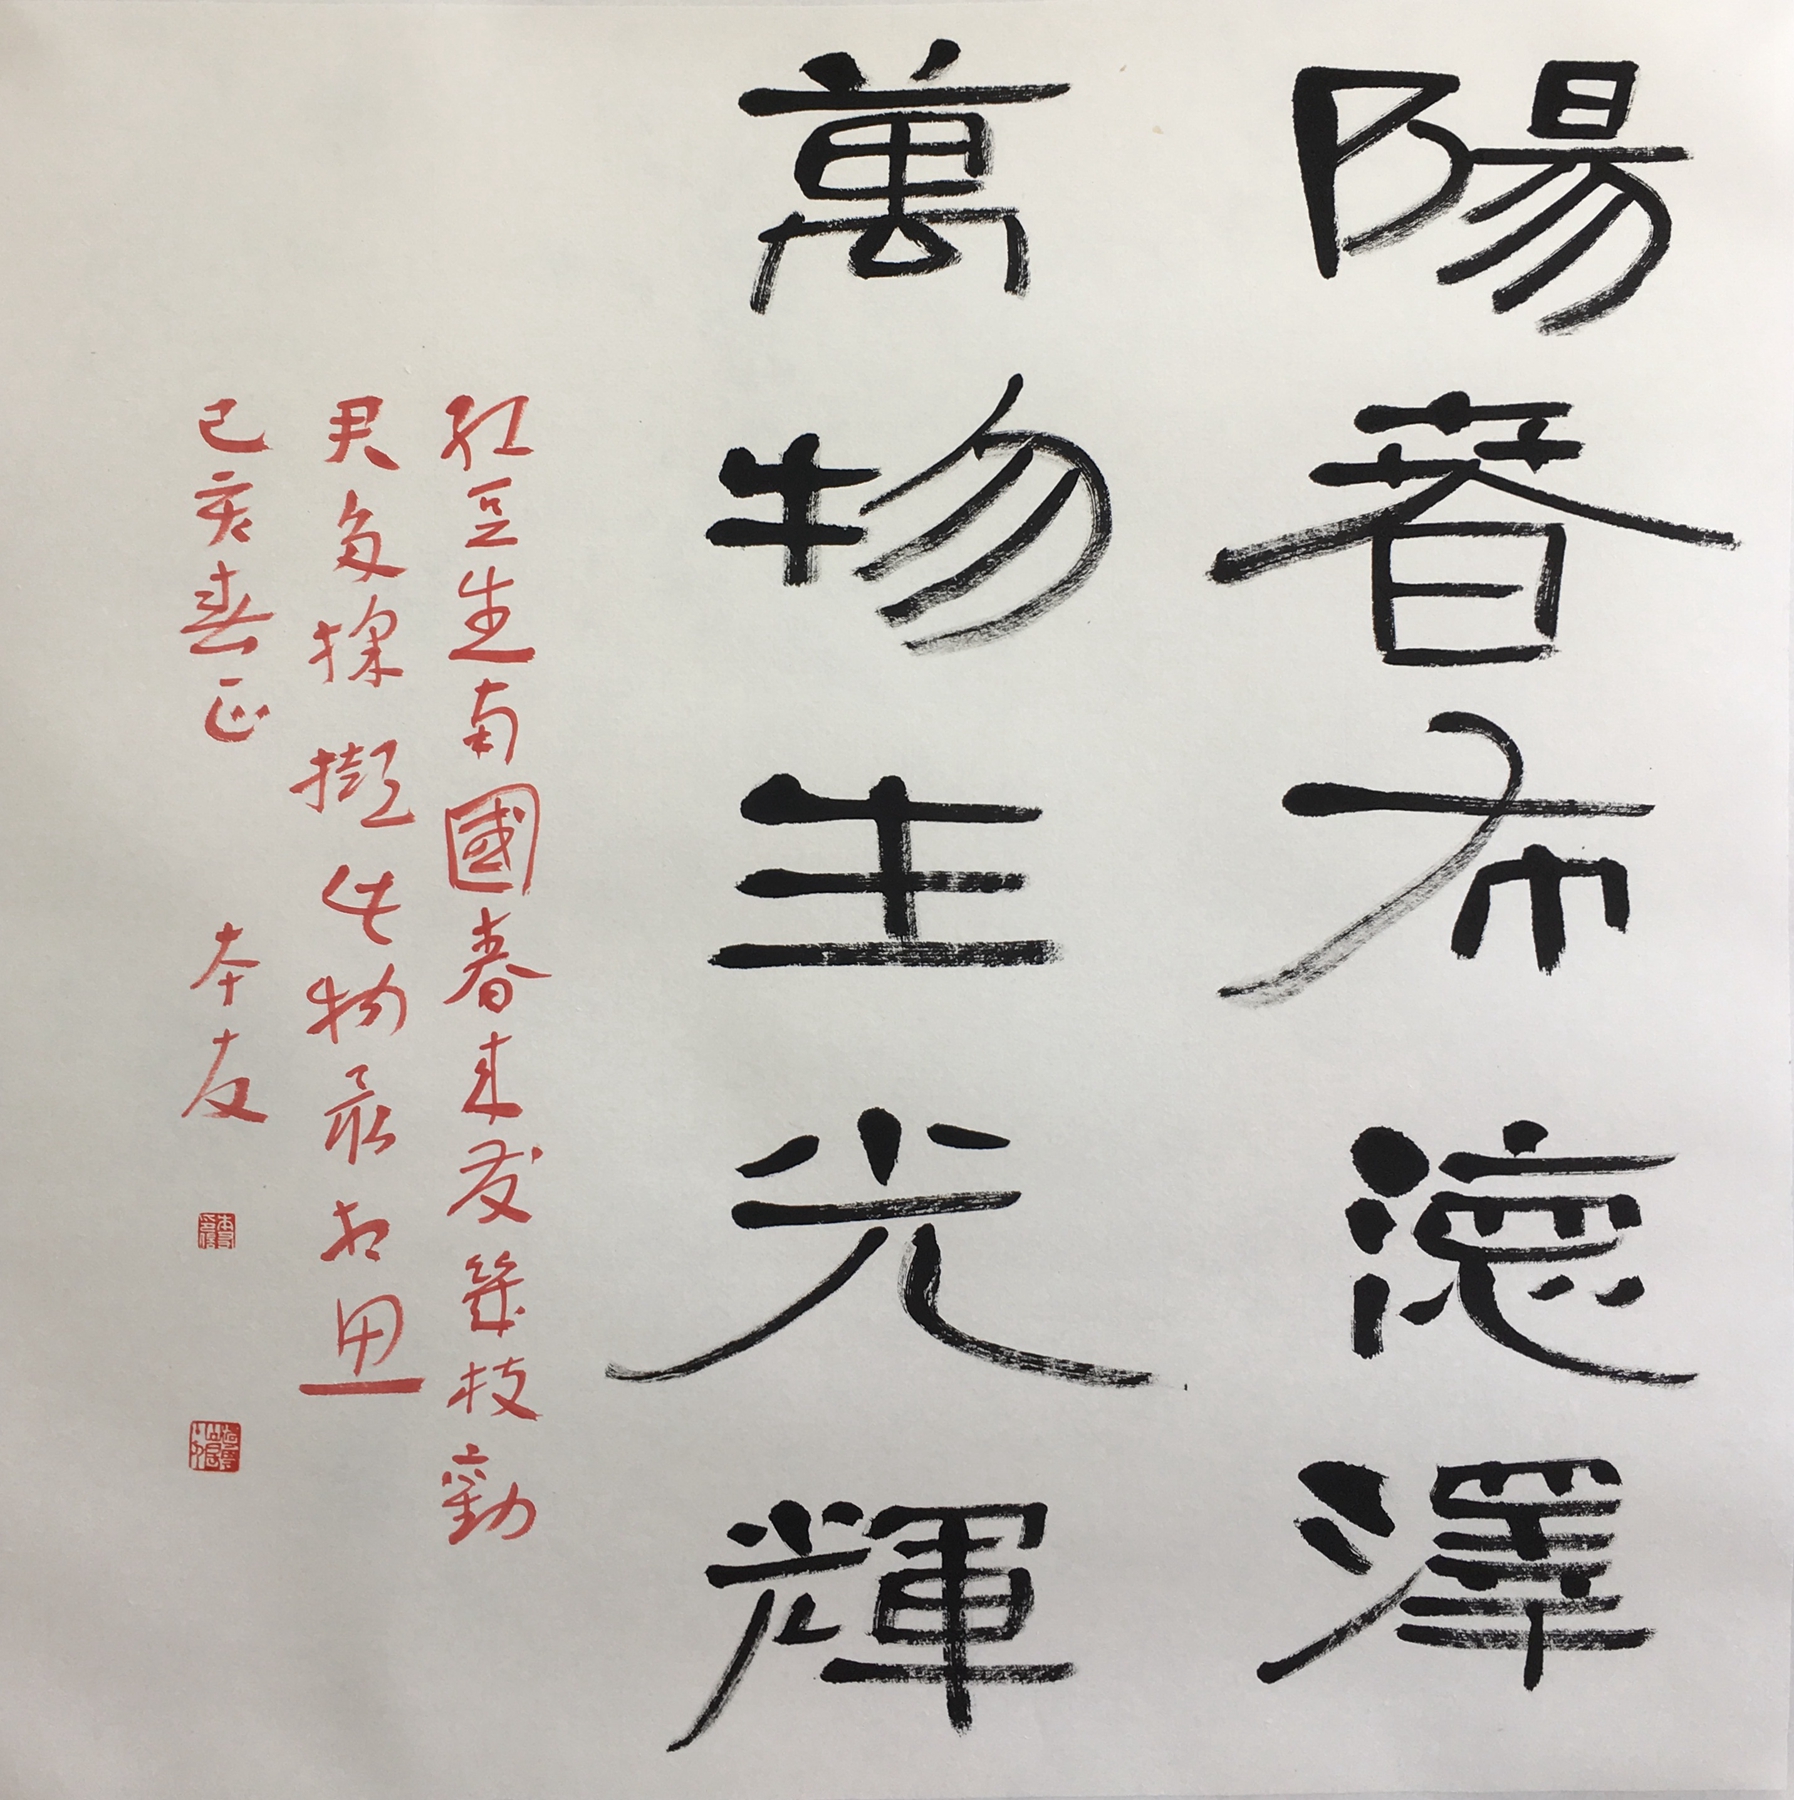 陽春布德澤
萬物生光輝
紅豆生南國春来发幾枝勸
君多採擷此物最相思
己亥春正 本友